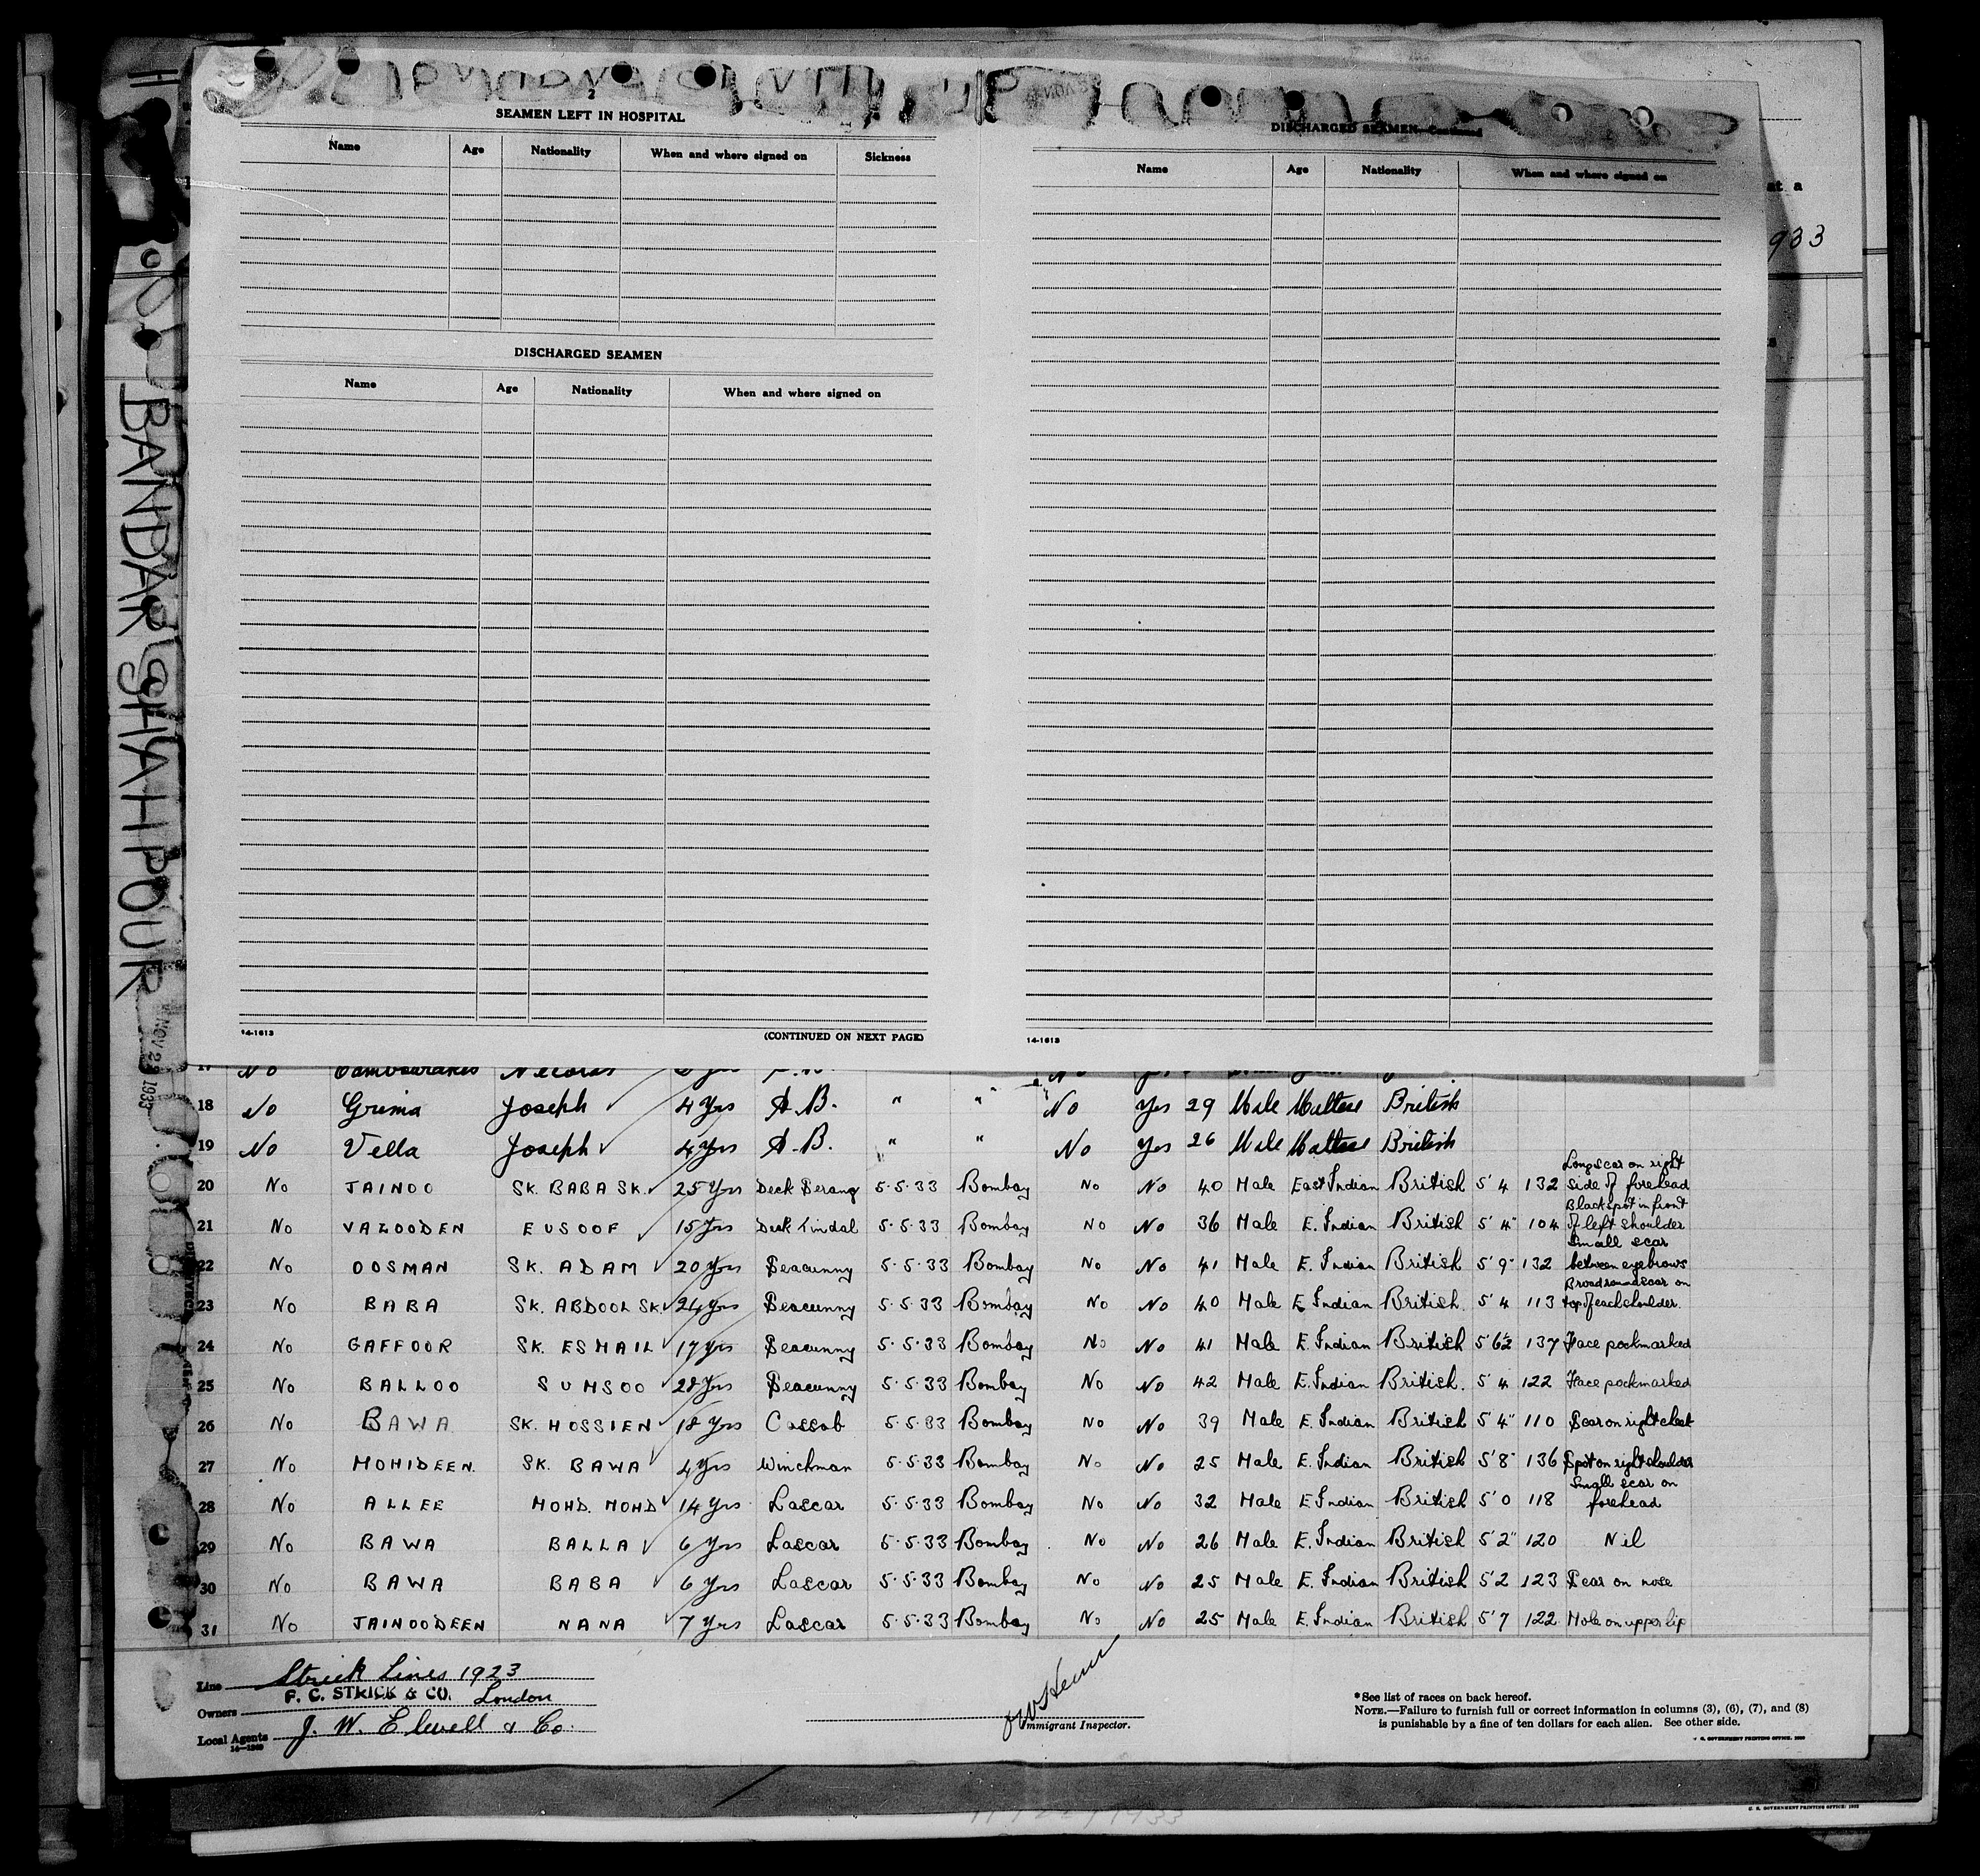 2
SEAMEN LEFT IN HOSPITAL
Name Age Nationality When and where signed on Sickness
DISCHARGED SEAMEN
Name Age Nationality When and where signed on
14-1613 (CONTINUED ON NEXT PAGE)
DISCHARGED SEAMEN—Continued
Name Age Nationality When and where signed on
14-1613
at a
933
BANDAR SHAHPOUR
NOV 22 1933
17 No
18 No Grima Joseph 4 Yrs A.B. " " No Yes 29 Male Maltese British
19 No Vella Joseph 4 Yrs A.B. " " No Yes 26 Male Maltese British
20 No JAINOO SK. BABA SK. 25 Yrs Deck Serang 5.5.33 Bombay No No 40 Male East Indian British 5'4 132 Long scar on right side of forehead
21 No VAZOODEN EUSOOF 15 Yrs Deck Tindal 5.5.33 Bombay No No 36 Male E. Indian British 5'4" 104 Black spot in front of left shoulder
22 No OOSMAN SK. ADAM 20 Yrs Seacunny 5.5.33 Bombay No No 41 Male E. Indian British 5'9" 132 Small scar between eyebrows
23 No BABA SK. ABDOOL SK. 24 Yrs Seacunny 5.5.33 Bombay No No 40 Male E. Indian British 5'4 113 Broad round scar on top of each shoulder.
24 No GAFFOOR SK. ESMAIL 17 Yrs Seacunny 5.5.33 Bombay No No 41 Male E. Indian British 5'6½ 137 Face pockmarked
25 No BALLOO SUMSOO 28 Yrs Seacunny 5.5.33 Bombay No No 42 Male E. Indian British. 5'4 122 Face pockmarked
26 No BAWA SK. HOSSIEN 18 Yrs Cassab 5.5.33 Bombay No No 39 Male E. Indian British 5'4" 110 Scar on right chest
27 No MOHIDEEN. SK. BAWA 4 Yrs Winchman 5.5.33 Bombay No No 25 Male E. Indian British 5'8" 136 Spot on right shoulder
28 No ALLEE MOHD. MOHD 14 Yrs Lascar 5.5.33 Bombay No No 32 Male E. Indian British 5'0 118 Small scar on forehead
29 No BAWA BALLA 6 Yrs Lascar 5.5.33 Bombay No No 26 Male E. Indian British 5'2" 120 Nil
30 No BAWA BABA 6 Yrs Lascar 5.5.33 Bombay No No 25 Male E. Indian British 5'2 123 Scar on nose
31 No JAINOODEEN NANA 7 Yrs Lascar 5.5.33 Bombay No No 25 Male E. Indian British 5'7 122 Mole on upper lip
Line Strick Lines 1923
Owners F. C. STRICK & CO. London
Local Agents J. W. Elwell & Co.
14-1240
Immigrant Inspector.
*See list of races on back hereof.
NOTE.—Failure to furnish full or correct information in columns (3), (6), (7), and (8)
is punishable by a fine of ten dollars for each alien. See other side.
U. S. GOVERNMENT PRINTING OFFICE
U. S. GOVERNMENT PRINTING OFFICE